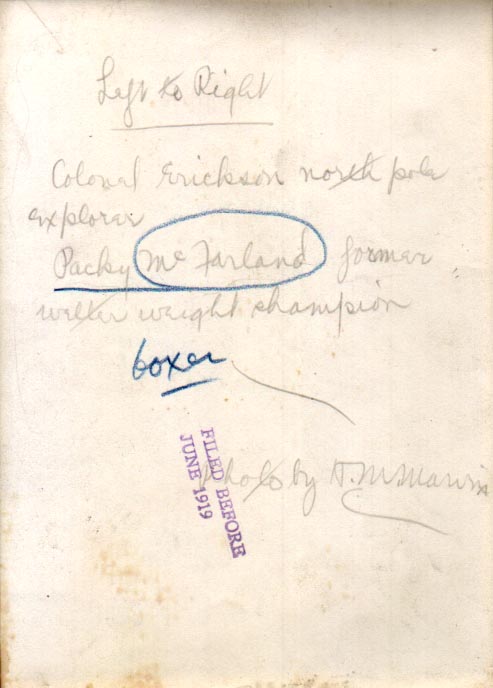 Left to Right
Colonel Erickson north pole
explorer
Packy McFarland former
welter weight champion
boxer
FILED BEFORE
JUNE 1919
Photo by H. M.